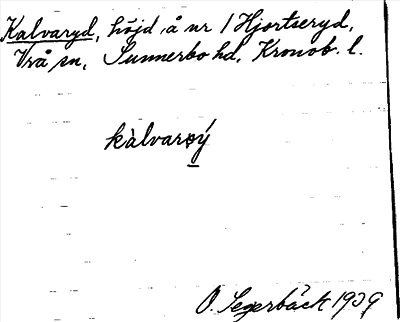 Kalvaryd, höjd å nr 1 Hjortseryd,
Vrå sn, Sunnerbo hd, Kronob. l.
kàlvarøý
O. Segerbäck 1939